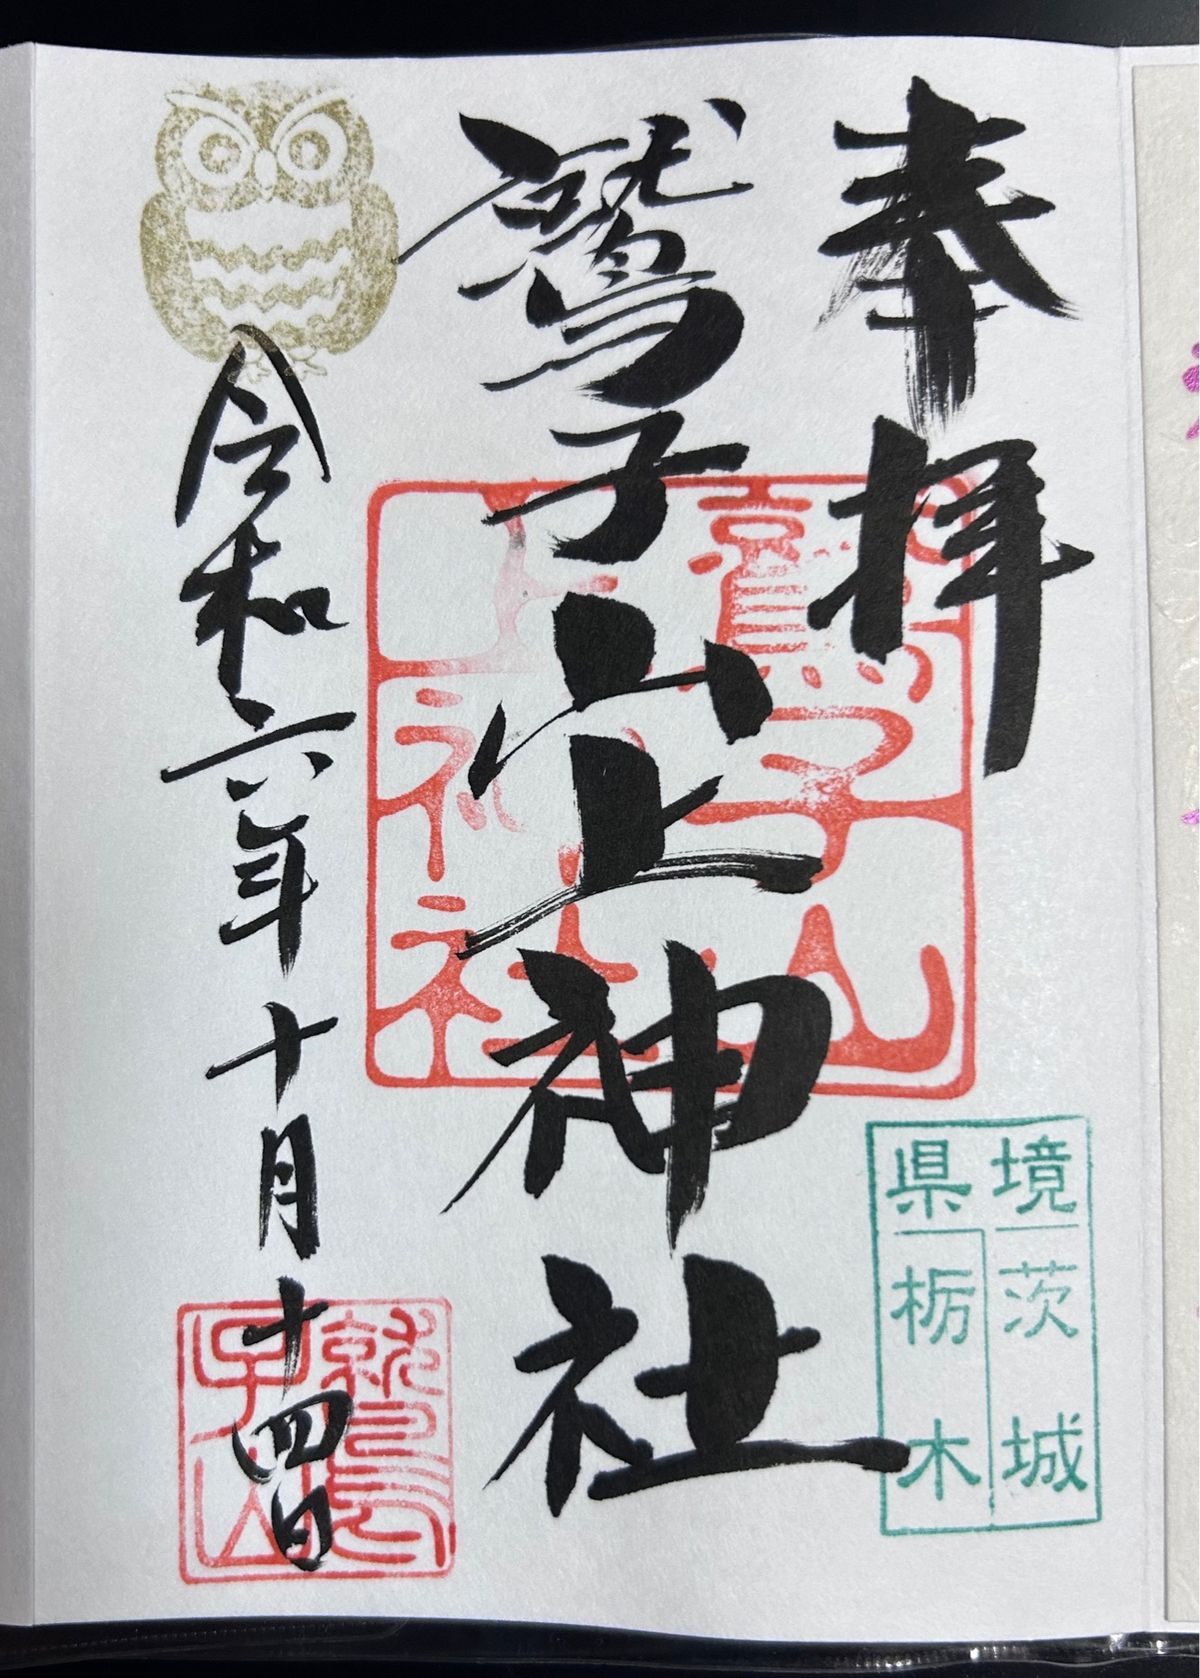 奉拝
鷲子山上神社
令和六年十月十四日
鷲子山
上神社
境
県
茨城
栃木
鷲
子山